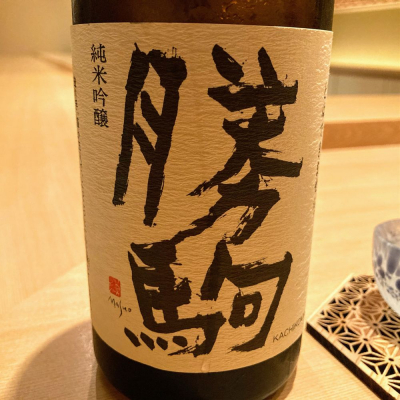 純米吟醸
勝駒
Masuo